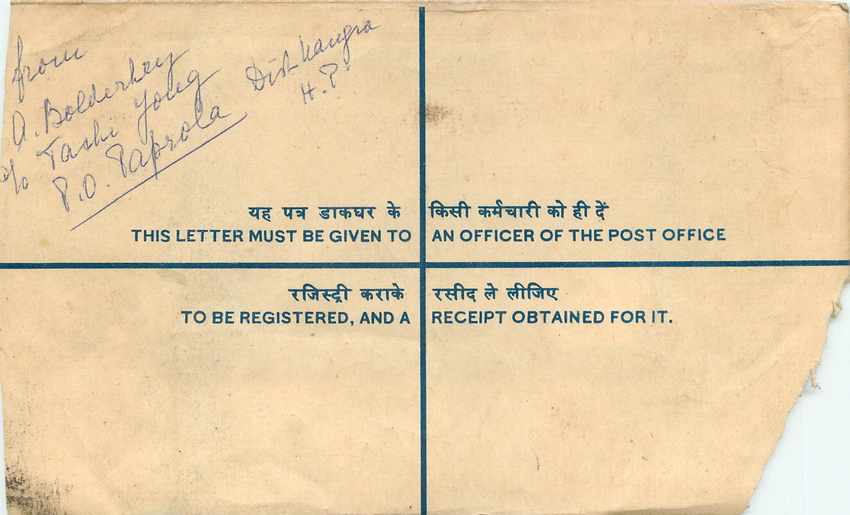 from
A. Bolderhey
c/o Tashi Yong
P.O. Paprola Dist Kangra
H.P.
यह पत्र डाकघर के किसी कर्मचारी को ही दें
THIS LETTER MUST BE GIVEN TO AN OFFICER OF THE POST OFFICE
रजिस्ट्री कराके रसीद ले लीजिए
TO BE REGISTERED, AND A RECEIPT OBTAINED FOR IT.